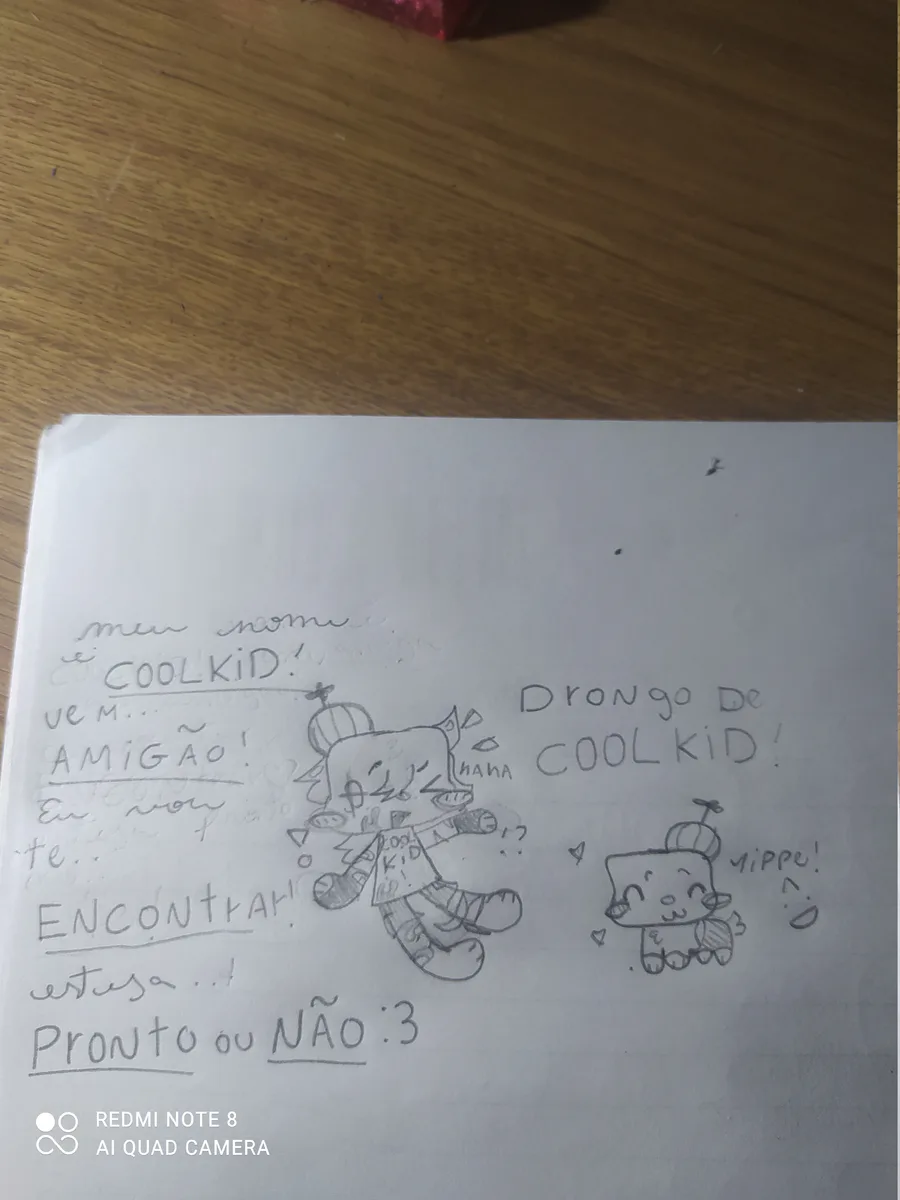 meu nome
é COOLKID!
vem...
AMIGÃO!
Eu vou
te...
ENCONtrAr!
esteja..!
Pronto ou NÃO :3
HAHA
!?
COOL
KID
Drongo De
COOLKID!
YIPPE!
^:D
REDMI NOTE 8
AI QUAD CAMERA